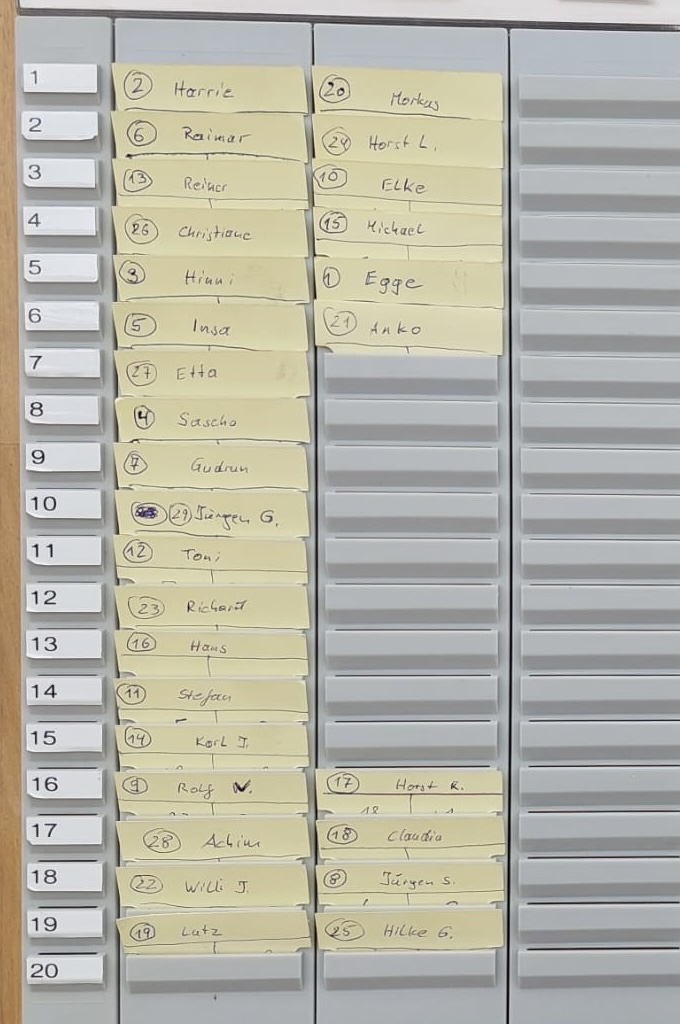 1 2 Harrie 20 Markus
2 6 Raimar 24 Horst L.
3 13 Reiner 10 Elke
4 26 Christiane 15 Michael
5 3 Hinni 1 Egge
6 5 Insa 21 Anko
7 27 Etta
8 4 Sascha
9 7 Gudrun
10 29 Jürgen G.
11 12 Toni
12 23 Richard
13 16 Hans
14 11 Stefan
15 14 Karl J.
16 9 Rolf 17 Horst R.
17 28 Achim 18 Claudia
18 22 Willi J. 8 Jürgen S.
19 19 Lutz 25 Hilke G.
20